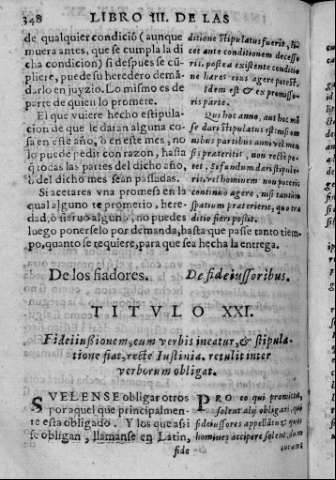 348 LIBRO III. DE LAS
de qualquier condició (aunque
muera antes, que se cumpla la di
cha condicion) si despues se cũ-
pliere, puede su heredero demã-
darlo en juyzio. Lo mismo es de
parte de quien lo promete.
El que vuiere hecho estipula-
cion de que le daran alguna co-
sa en este año, ò en este mes, no
lo puede pedir con razon, hasta
q̃ todas las partes del dicho año,
ò del dicho mes sean passadas.
Si acetares vna promesa en la
qual alguno te prometio, here-
dad, ò sieruo alguno, no puedes
ditione stipulatus fuerit, li-
cet ante conditionem decesse-
rit, postea existente conditio
ne hæres eius agere potest.
Idem est & ex promisso-
ris parte.
Qui hoc anno, aut hoc mẽ
se dari stipulatus est: nisi om
nibus partibus anni vel men
sis præteritis, non rectè pe-
tet. Si fundum dari stipula-
ris, vel hominem: non poteris
continuò agere, nisi tantum
spatium præterierit, quo tra
ditio fieri possit.
luego ponerselo por demanda, hasta que passe tanto tiem-
po, quanto se requiere, para que sea hecha la entrega.
De los fiadores. De fideiussoribus.
TITVLO XXI.
Fideiussionem, cum verbis ineatur, & stipula-
tione fiat, rectè Iustinia. retulit inter
verborum obligat.
SVELENSE obligar otros
por aquel que principalmen-
te esta obligado. Y los que assi
se obligan, llamanse en Latin,
PRO eo qui promittit,
solent alij obligari, qui
fideiussores appellãtur: quos
homines accipere solent, dum
fide curant